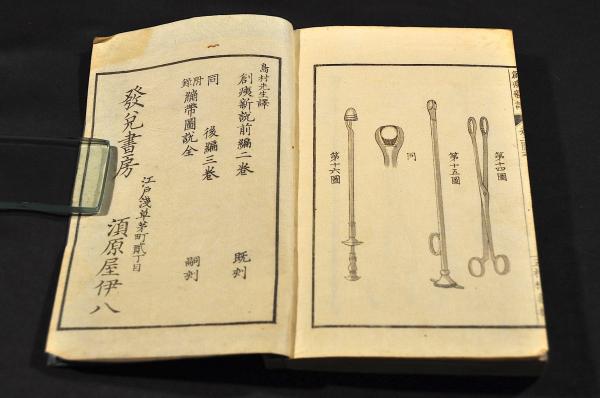 第十四圖
第十五圖
同
第十六圖
島村先生譯
創痍新説前編二巻 既刻
同 後編三巻
附録 繃帶圖説全 嗣刻
江戸淺草茅町貳丁目
發兌書房 須原屋伊八